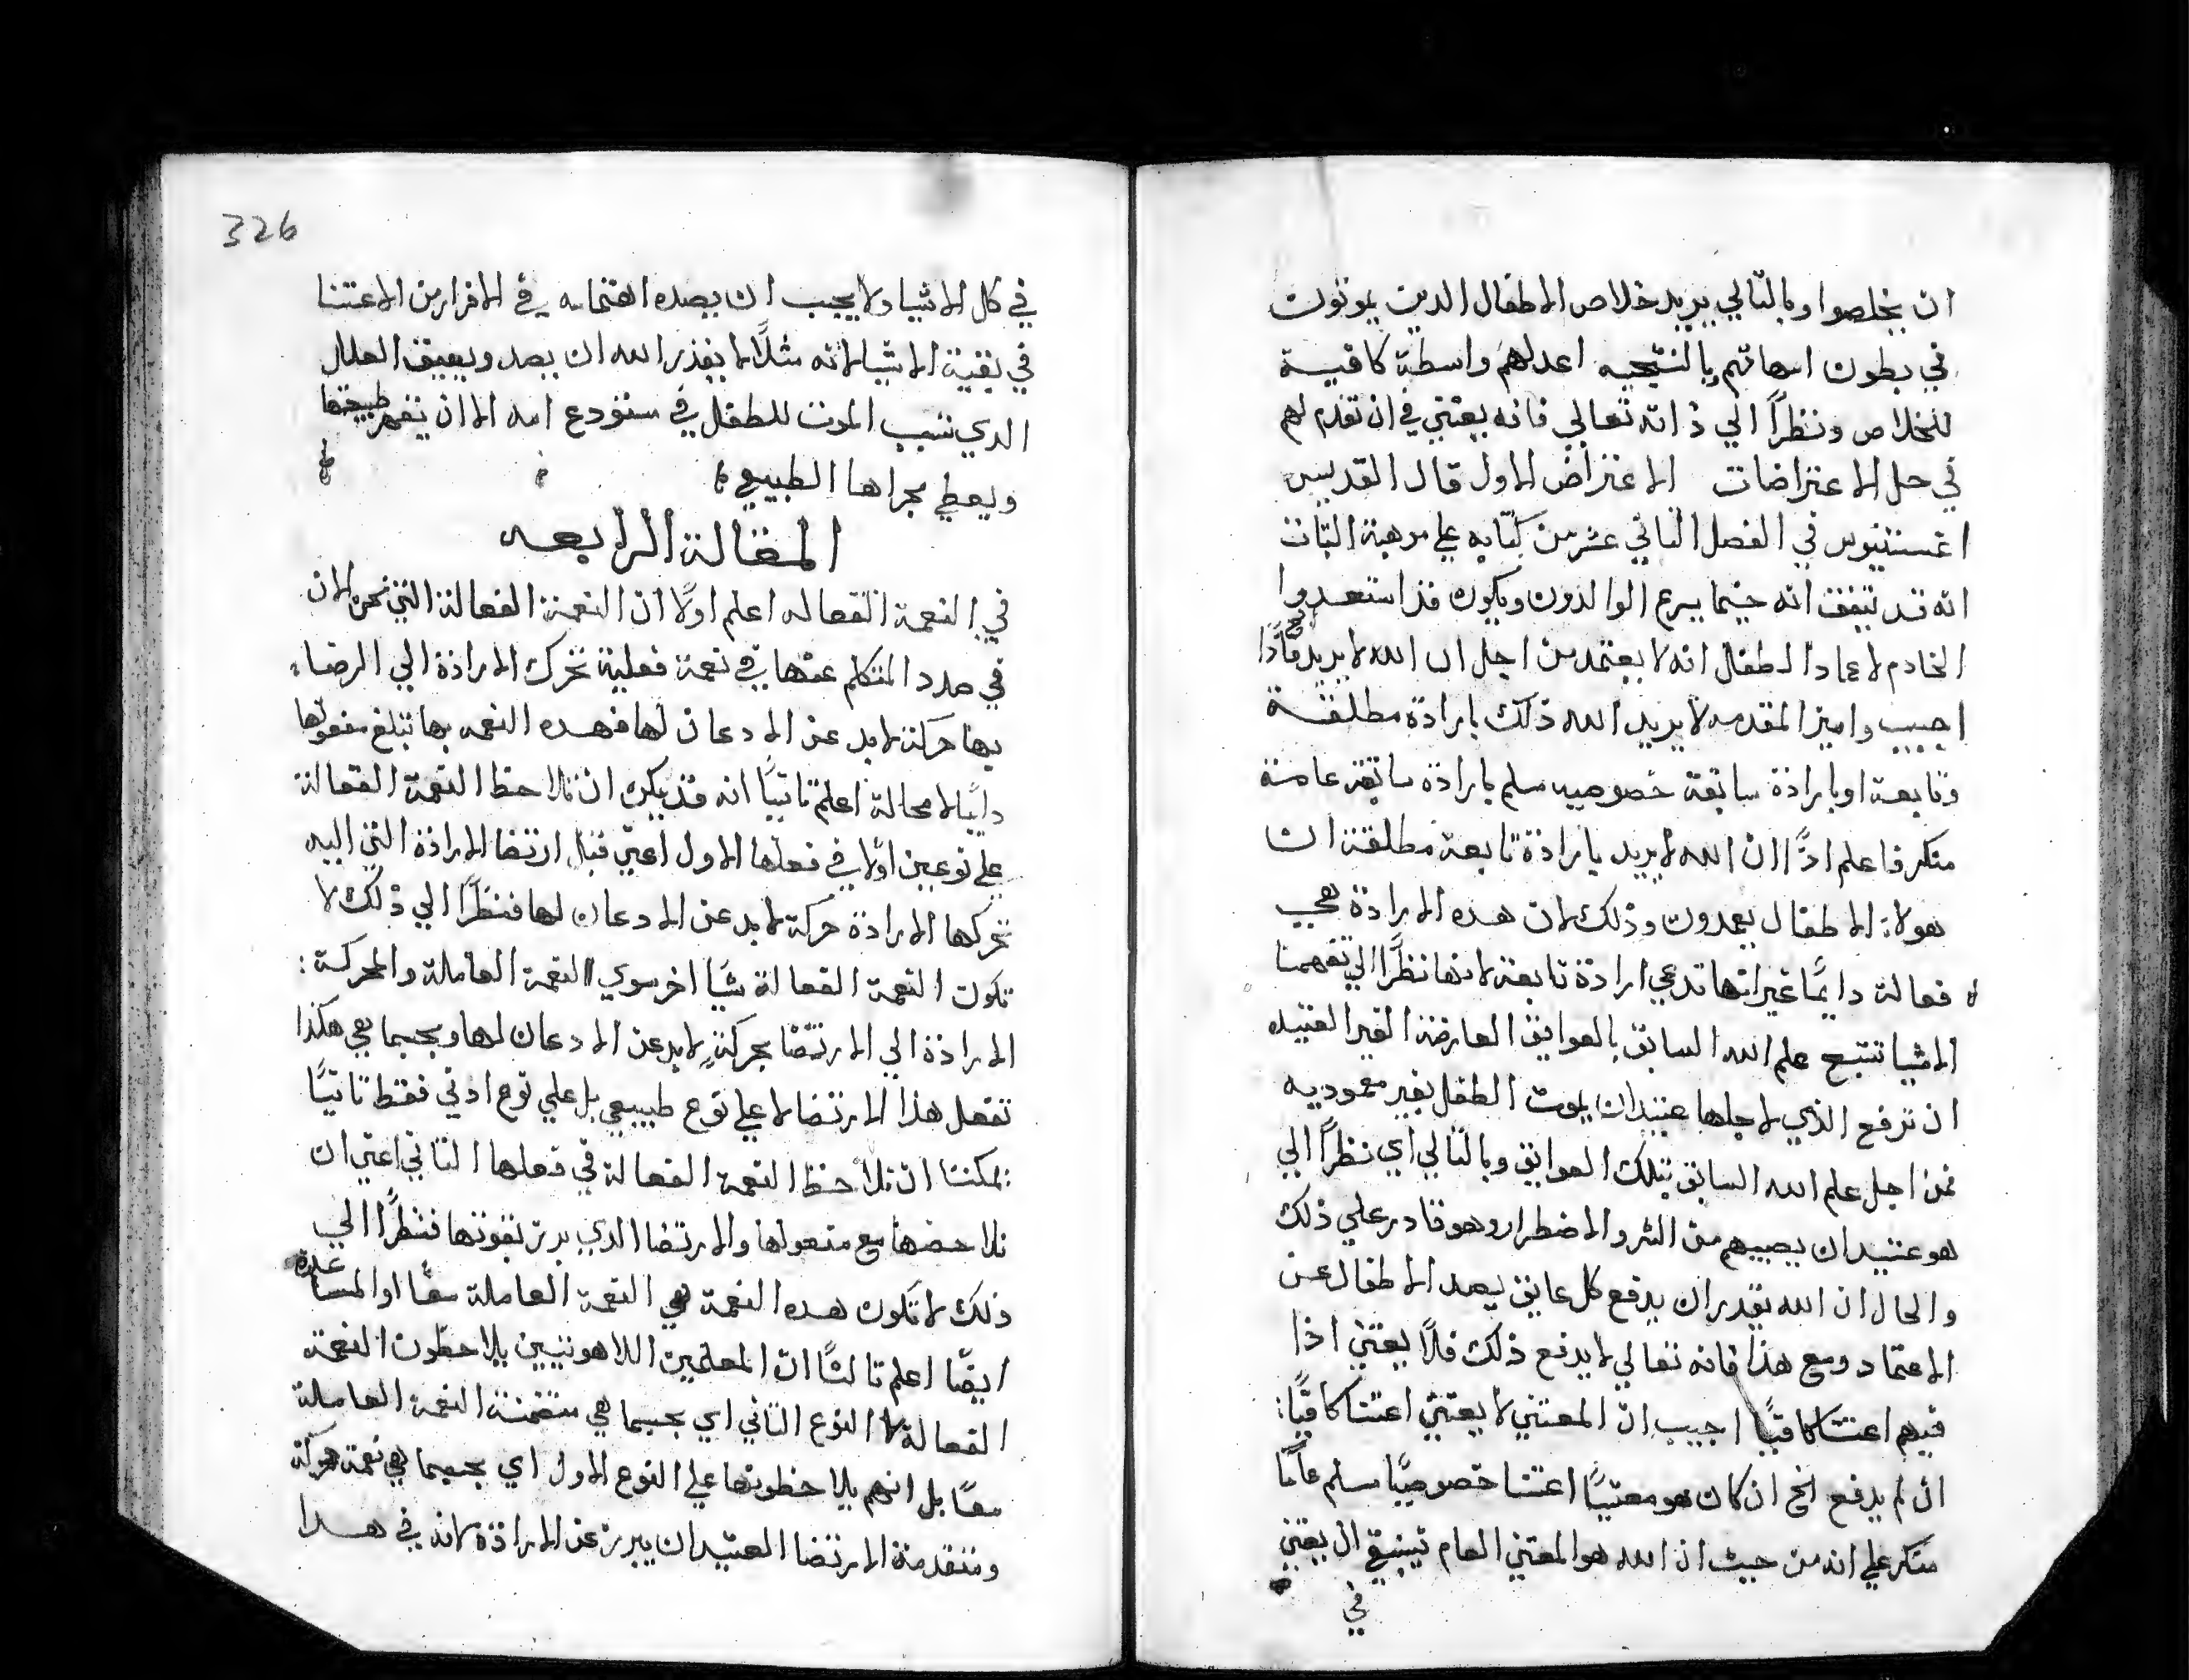 ان يخلصوا وبالتالي يريد خلاص الاطفال الدين يموتون
في بطون امهاتهم بالنتيجيه اعد لهم واسطة كافية
للخلاص ونظرًا الي ذاته تعالي فانه يعتني في ان تقدم لهم
في حل الاعتراضات الاعتراض الاول قال القديس
اغسنتيوس في الفصل التاني عشر من كتابه علي موهبة التبات
انه قد يتفق انه حينما يسرع الوالدون ويكون قد استعدوا
الخادم لاعماد الطفال انه لا يعتمد من اجل ان الله لا يريد فادًا
اجيب واميز المقدمه لا يريد الله ذلك بارادة مطلقة
وتابعة او بارادة سابقة خصوصيه سلم بارادة سابقة عامة
منكر فاعلم ادًا ان الله لا يريد بارادة تابعة مطلقة ان
هولاء الاطفال يعمدون وذلك لان هده الارادة هي
فعالة دايمًا غير انها تدعي ارادة تابعة لانها نظرًا الي تفهمنا
الاشيا تتبع علم الله السابق بالعوايق العارضة الغير العتيده
ان ترفع الذي لاجلها عتيد ان يموت الطفل بغير معموديه
فمن اجل علم الله السابق بتلك العوايق وبالتالي اي نظرًا الي
هو عتيد ان يصيبهم من الشر والاضطرار وهو قادر علي ذلك
والحال ان الله يقدر ان يدفع كل عايق يصد الاطفال عن
الاعتماد ومع هذا فانه تعالي لا يدفع ذلك فلا يعتني اذا
فيهم اعتنا كافيًا اجيب ان المعتني لا يعتني اعتنا كافيًا:
ان لم يدفع الخ ان كان هو معتنيًا اعتنا خصوصيًا سلم عامًا
منكر علي انه من حيث ان الله هو المعتني العام فينبغي ان يعتني
في
326
في كل الاشيا ولا يجب ان يصده اهتمامه في الافراز من الاعتنا
في بقية الاشيا لانه مثلًا لا يقدر الله ان يصد ويعيق العلل
الدي تسبب الموت للطفل في مستودع امه الا ان يقهر طبيعتها
ويعطي مجراها الطبيعي
المقالة الرابعه
في النعمة الفعاله اعلم اولًا ان النعمة الفعالة التي نحن الان
في صدد المتكلم عنها هي نعمة فعلية تحرك الارادة الي الرضاء
بها حركة لابد عن الادعان لها فهده النعمه بها تبلغ مفعولها
دايمًا لا محالة اعلم تانيًا انه قد يمكن ان نلاحظ النعمة الفعالة
علي نوعين اولًا في فعلها الاول اعني قبل ارتضا الارادة التي اليه
تحركها الارادة حركة لابد عن الادعان لها فنظرًا الي ذلك لا
تكون النعمة الفعالة شيًا اخر سوي النعمة العاملة والمحركة:
الارادة الي الارتضا بحركة لابد عن الادعان لها وبحسبما هي هكذا
تفعل هذا الارتضا لا علي نوع طبيعي بل علي نوع ادني فقط تانيًا
يمكننا ان نلاحظ النعمة الفعالة في فعلها التاني اعني ان
نلاحضها مع مفعولها والارتضا الدي يبرز بقوتها فنظرًا الي
ذلك لا تكون هده النعمة هي النعمة العاملة معًا او المساعدة
ايضًا اعلم تالثًا ان المعلمين اللاهوتيين يلاحظون النعمة
الفعالة لا النوع التاني اي بحسبما هي متضمنة النعمة العاملة
معًا بل انهم يلاحظونها علي النوع الاول اي بحسبما هي نعمة محركة
ومتقدمة الارتضا العتيد ان يبرز عن الارادة لانه في هدا